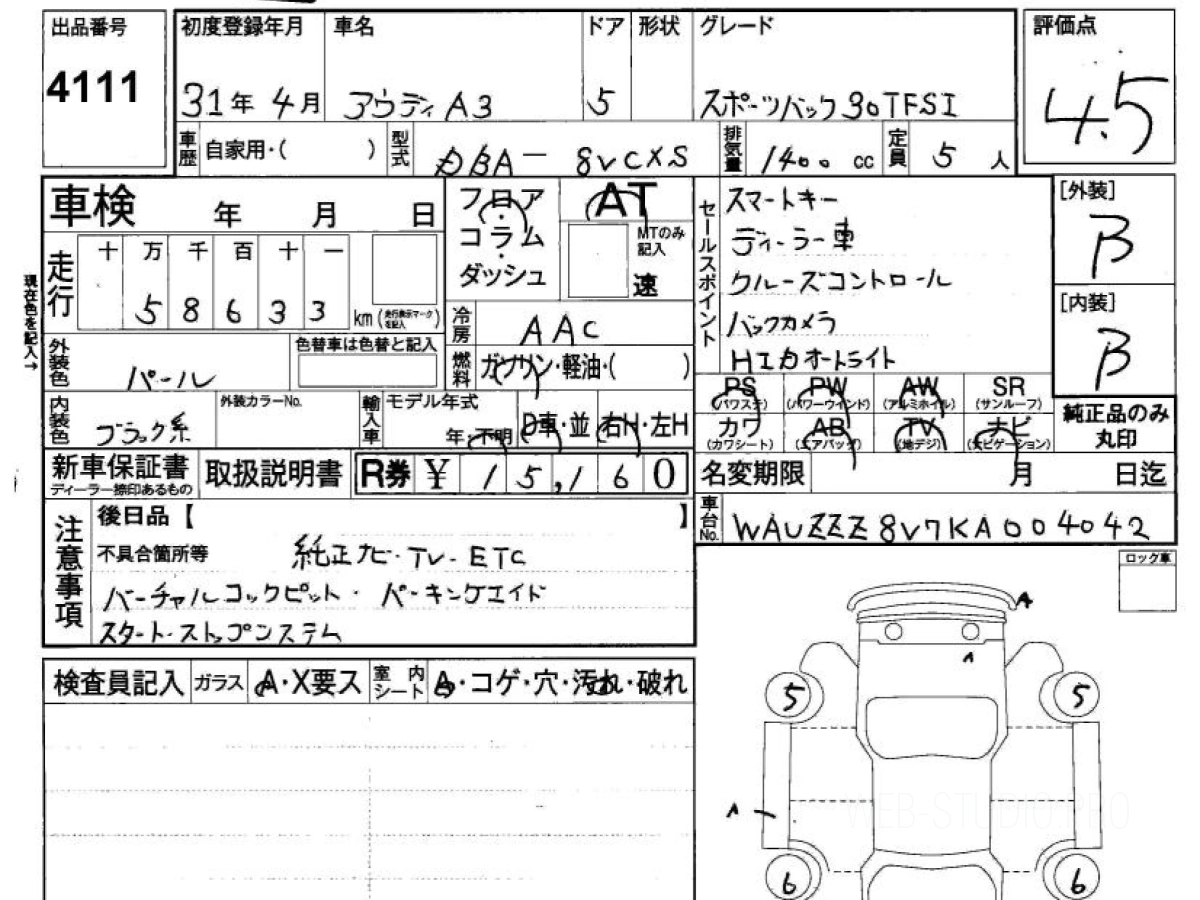 出品番号
4111
初度登録年月
31年 4月
車名
アウディ A3
ドア
5
形状
グレード
スポーツバック 30TFSI
評価点
4.5
車歴 自家用・( )
型式 DBA- 8VCXS
排気量 1400 cc
定員 5 人
車検 年 月 日
フロア・コラム・ダッシュ
AT
MTのみ記入
速
セールスポイント
スマートキー
ディーラー車
クルーズコントロール
バックカメラ
HID オートライト
[外装]
B
[内装]
B
現在色を記入→
走行
十 万 千 百 十 一
5 8 6 3 3 km (走行表示マークを記入)
冷房 AAC
外装色 パール
色替車は色替と記入
燃料 ガソリン・軽油・( )
PS (パワステ) PW (パワーウインド) AW (アルミホイル) SR (サンルーフ)
カワ (カワシート) AB (エアバッグ) TV (地デジ) ナビ (ナビゲーション)
純正品のみ丸印
内装色 ブラック系
外装カラーNo.
輸入車 モデル年式
年・不明
D車・並 右H・左H
新車保証書
ディーラー捺印あるもの
取扱説明書
R券 ¥ 15,160
名変期限 月 日迄
車台No. WAUZZZ8V7KA004042
注意事項
後日品【 】
不具合箇所等 純正ナビ・TV・ETC
バーチャルコックピット・ パーキングエイド
スタート・ストップシステム
ロック車
検査員記入 ガラス A・X要ス 室内シート ・コゲ・穴・汚れ・破れ
A
A
5 5
A
WEB-STUDIO.PRO
6 6